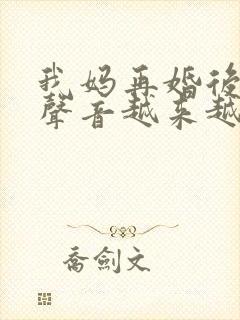 我妈再婚後
聲音越来越
喬劍文